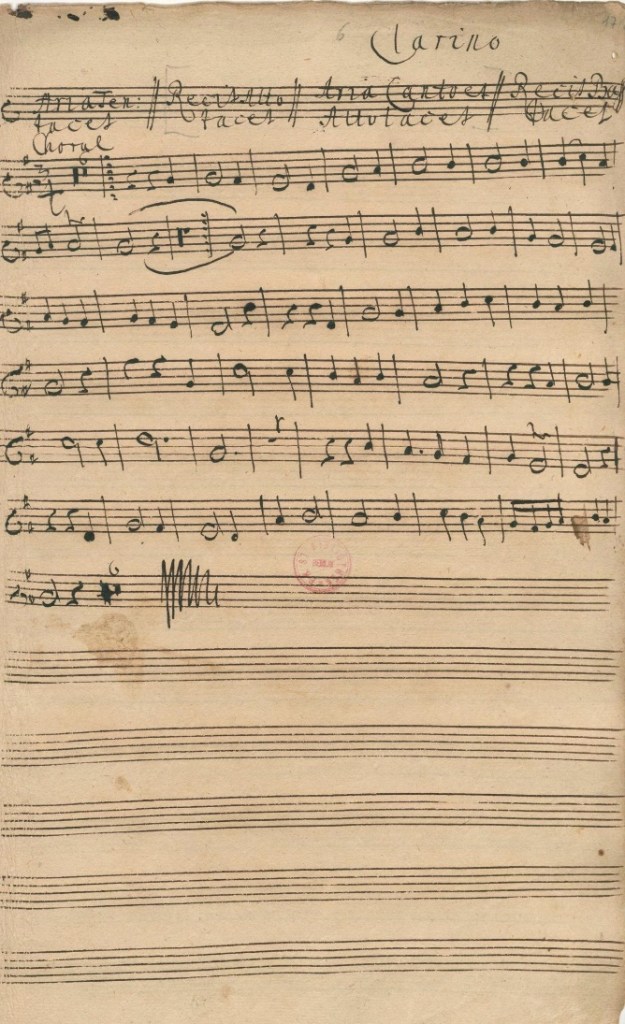 6 Clarino
Aria Ten: // Recit Alto // Aria Canto et // Recit Bass
tacet tacet Alto tacet tacet
Choral
6